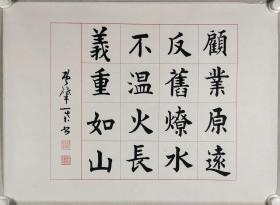 義不反顧
重温舊業
如火燎原
山長水遠